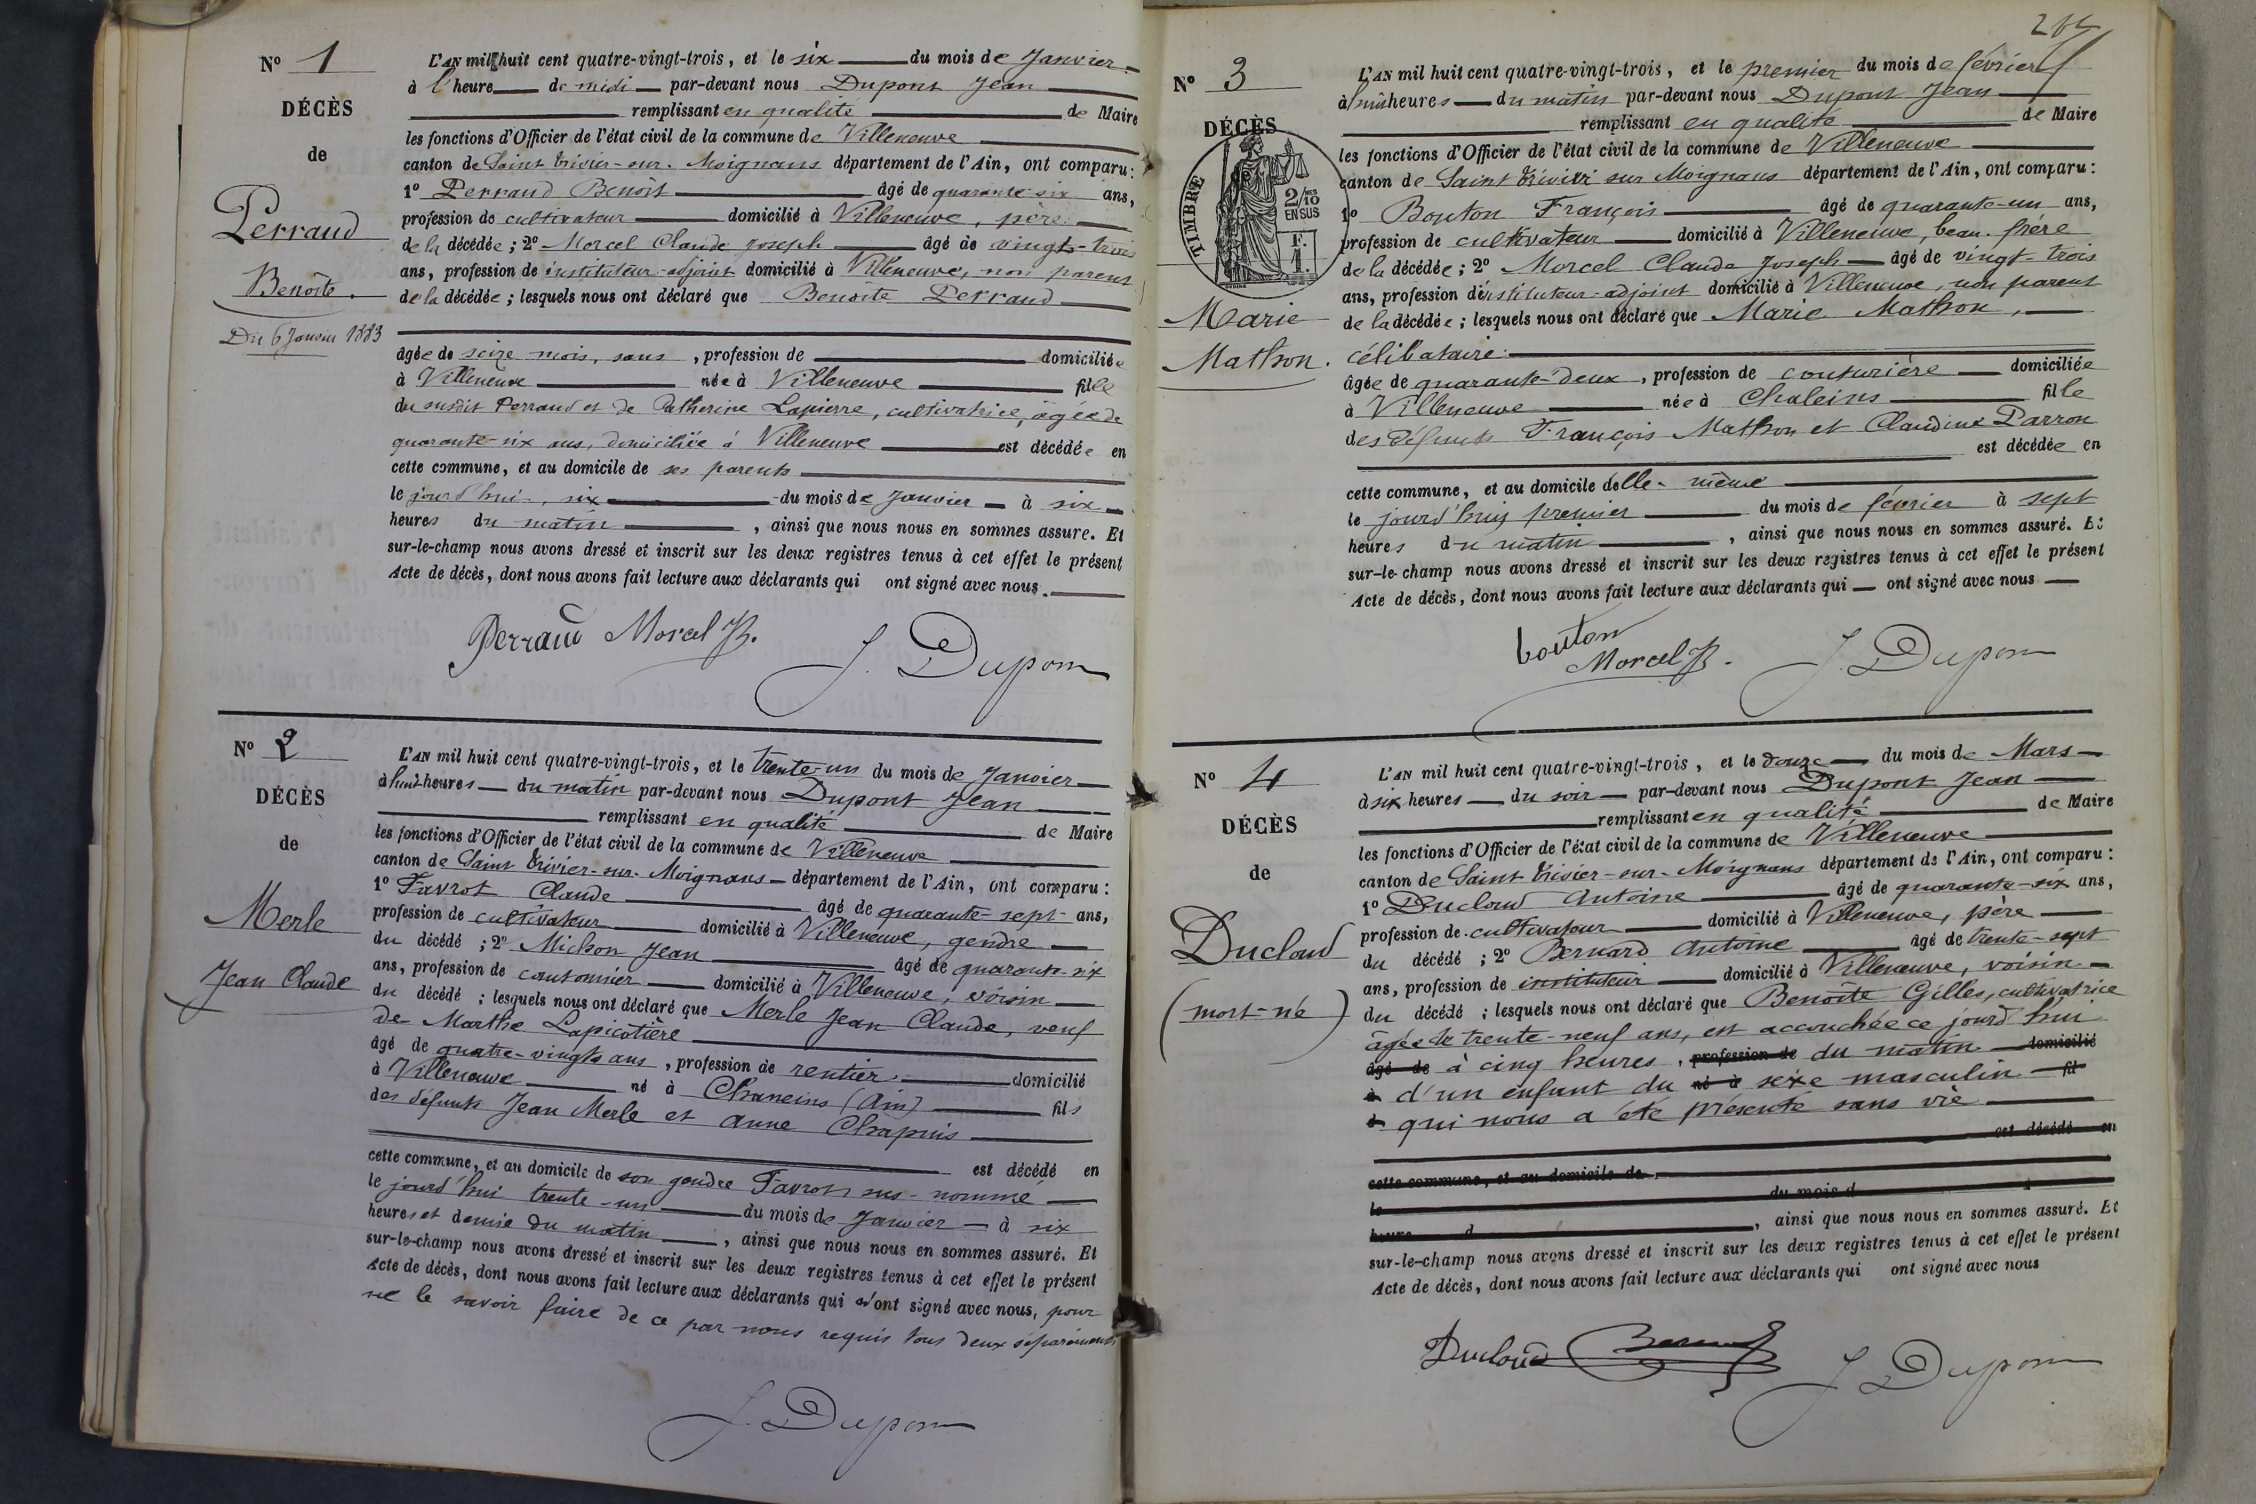 Nº 1
DÉCÈS
de
Perraud
Benoîte.
Du 6 Janvier 1883
L'AN mil huit cent quatre-vingt-trois, et le six du mois de Janvier
à l'heure de midi par-devant nous Dupont Jean
remplissant en qualité de Maire
les fonctions d'Officier de l'état civil de la commune de Villeneuve
canton de Saint Trivier-sur-Moignans département de l'Ain, ont comparu:
1º Perraud Benoît âgé de quarante-six ans,
profession de cultivateur domicilié à Villeneuve, père
de la décédée; 2º Morcel Claude Joseph âgé de vingt-trois
ans, profession de instituteur-adjoint domicilié à Villeneuve, non parent
de la décédée; lesquels nous ont déclaré que Benoîte Perraud
âgée de seize mois, sans, profession de domiciliée
à Villeneuve née à Villeneuve fille
du susdit Perraud et de Catherine Lapierre, cultivatrice, âgée de
quarante-six ans, domiciliée à Villeneuve est décédée en
cette commune, et au domicile de ses parents
le jourd'hui, six du mois de Janvier à six
heures du matin, ainsi que nous nous en sommes assuré. Et
sur-le-champ nous avons dressé et inscrit sur les deux registres tenus à cet effet le présent
Acte de décès, dont nous avons fait lecture aux déclarants qui ont signé avec nous.
Perraud Morcel
J. Dupont
Nº 2
DÉCÈS
de
Merle
Jean Claude
L'AN mil huit cent quatre-vingt-trois, et le trente-un du mois de Janvier
à huit heures du matin par-devant nous Dupont Jean
remplissant en qualité de Maire
les fonctions d'Officier de l'état civil de la commune de Villeneuve
canton de Saint Trivier-sur-Moignans département de l'Ain, ont comparu:
1º Favrot Claude âgé de quarante-sept ans,
profession de cultivateur domicilié à Villeneuve, gendre
du décédé; 2º Michon Jean âgé de quarante-six
ans, profession de cantonnier domicilié à Villeneuve, voisin
du décédé; lesquels nous ont déclaré que Merle Jean Claude, veuf
de Marthe Lapicotière
âgé de quatre-vingts ans, profession de rentier, domicilié
à Villeneuve né à Chaneins (Ain) fils
des défunts Jean Merle et Anne Chapuis
est décédé en
cette commune, et au domicile de son gendre Favrot sus-nommé
le jourd'hui trente-un du mois de Janvier à six
heures et demie du matin, ainsi que nous nous en sommes assuré. Et
sur-le-champ nous avons dressé et inscrit sur les deux registres tenus à cet effet le présent
Acte de décès, dont nous avons fait lecture aux déclarants qui n'ont signé avec nous, pour
ne le savoir faire de ce par nous requis tous deux séparément
J. Dupont
265
Nº 3
DÉCÈS
TIMBRE
2/10 EN SUS
F. 1.
Marie
Mathon.
L'AN mil huit cent quatre-vingt-trois, et le premier du mois de février
à huit heures du matin par-devant nous Dupont Jean
remplissant en qualité de Maire
les fonctions d'Officier de l'état civil de la commune de Villeneuve
canton de Saint Trivier sur Moignans département de l'Ain, ont comparu:
1º Bouton François âgé de quarante-un ans,
profession de cultivateur domicilié à Villeneuve, beau-frère
de la décédée; 2º Morcel Claude Joseph âgé de vingt-trois
ans, profession d'instituteur-adjoint domicilié à Villeneuve, non parent
de la décédée; lesquels nous ont déclaré que Marie Mathon,
célibataire
âgée de quarante-deux, profession de couturière domiciliée
à Villeneuve née à Chaleins fille
des défunts François Mathon et Claudine Parron
est décédée en
cette commune, et au domicile d'elle-même
le jourd'hui premier du mois de février à sept
heures du matin, ainsi que nous nous en sommes assuré. Et
sur-le-champ nous avons dressé et inscrit sur les deux registres tenus à cet effet le présent
Acte de décès, dont nous avons fait lecture aux déclarants qui ont signé avec nous
bouton
Morcel
J. Dupont
Nº 4
DÉCÈS
de
Ducloud
(mort-né)
L'AN mil huit cent quatre-vingt-trois, et le douze du mois de Mars
à six heures du soir par-devant nous Dupont Jean
remplissant en qualité de Maire
les fonctions d'Officier de l'état civil de la commune de Villeneuve
canton de Saint Trivier-sur-Moignans département de l'Ain, ont comparu:
1º Ducloud Antoine âgé de quarante-six ans,
profession de cultivateur domicilié à Villeneuve, père
du décédé; 2º Bernard Antoine âgé de trente-sept
ans, profession de instituteur domicilié à Villeneuve, voisin
du décédé; lesquels nous ont déclaré que Benoîte Gilles, cultivatrice
âgée de trente-neuf ans, est accouchée ce jourd'hui
âgé de à cinq heures, profession de du matin domicilié
à d'un enfant du né à sexe masculin fil
d qui nous a été présenté sans vie
est décédé en
cette commune, et au domicile de
le du mois d à
heure d, ainsi que nous nous en sommes assuré. Et
sur-le-champ nous avons dressé et inscrit sur les deux registres tenus à cet effet le présent
Acte de décès, dont nous avons fait lecture aux déclarants qui ont signé avec nous
Ducloud Bernard
J. Dupont